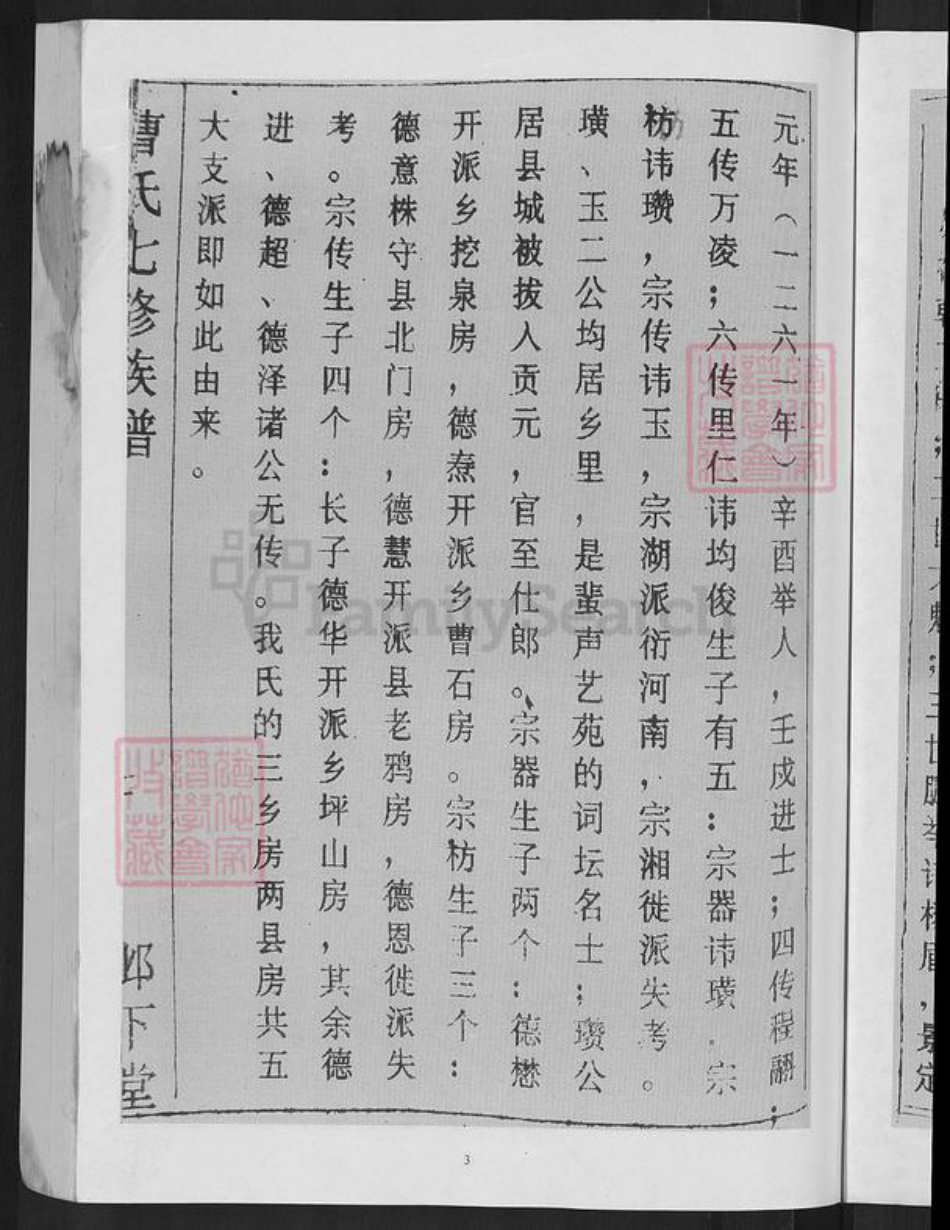 元年（一二六一年）辛酉举人，壬戍进士；四传程翮；
五传万凌；六传里仁讳均俊生子有五：宗器讳璜、宗
枋讳瓒，宗传讳玉，宗湖派衍河南，宗湘徙派失考。
璜、玉二公均居乡里，是蜚声艺苑的词坛名士；瓒公
居县城被拔入贡元，官至仕郎。宗器生子两个：德懋
开派乡挖泉房，德焘开派乡曹石房。宗枋生子三个：
德意株守县北门房，德慧开派县老鸦房，德恩徙派失
考。宗传生子四个：长子德华开派乡坪山房，其余德
进、德超、德泽诸公无传。我氏的三乡房两县房共五
大支派即如此由来。
曹氏七修族谱
邺下堂
3
FamilySearch